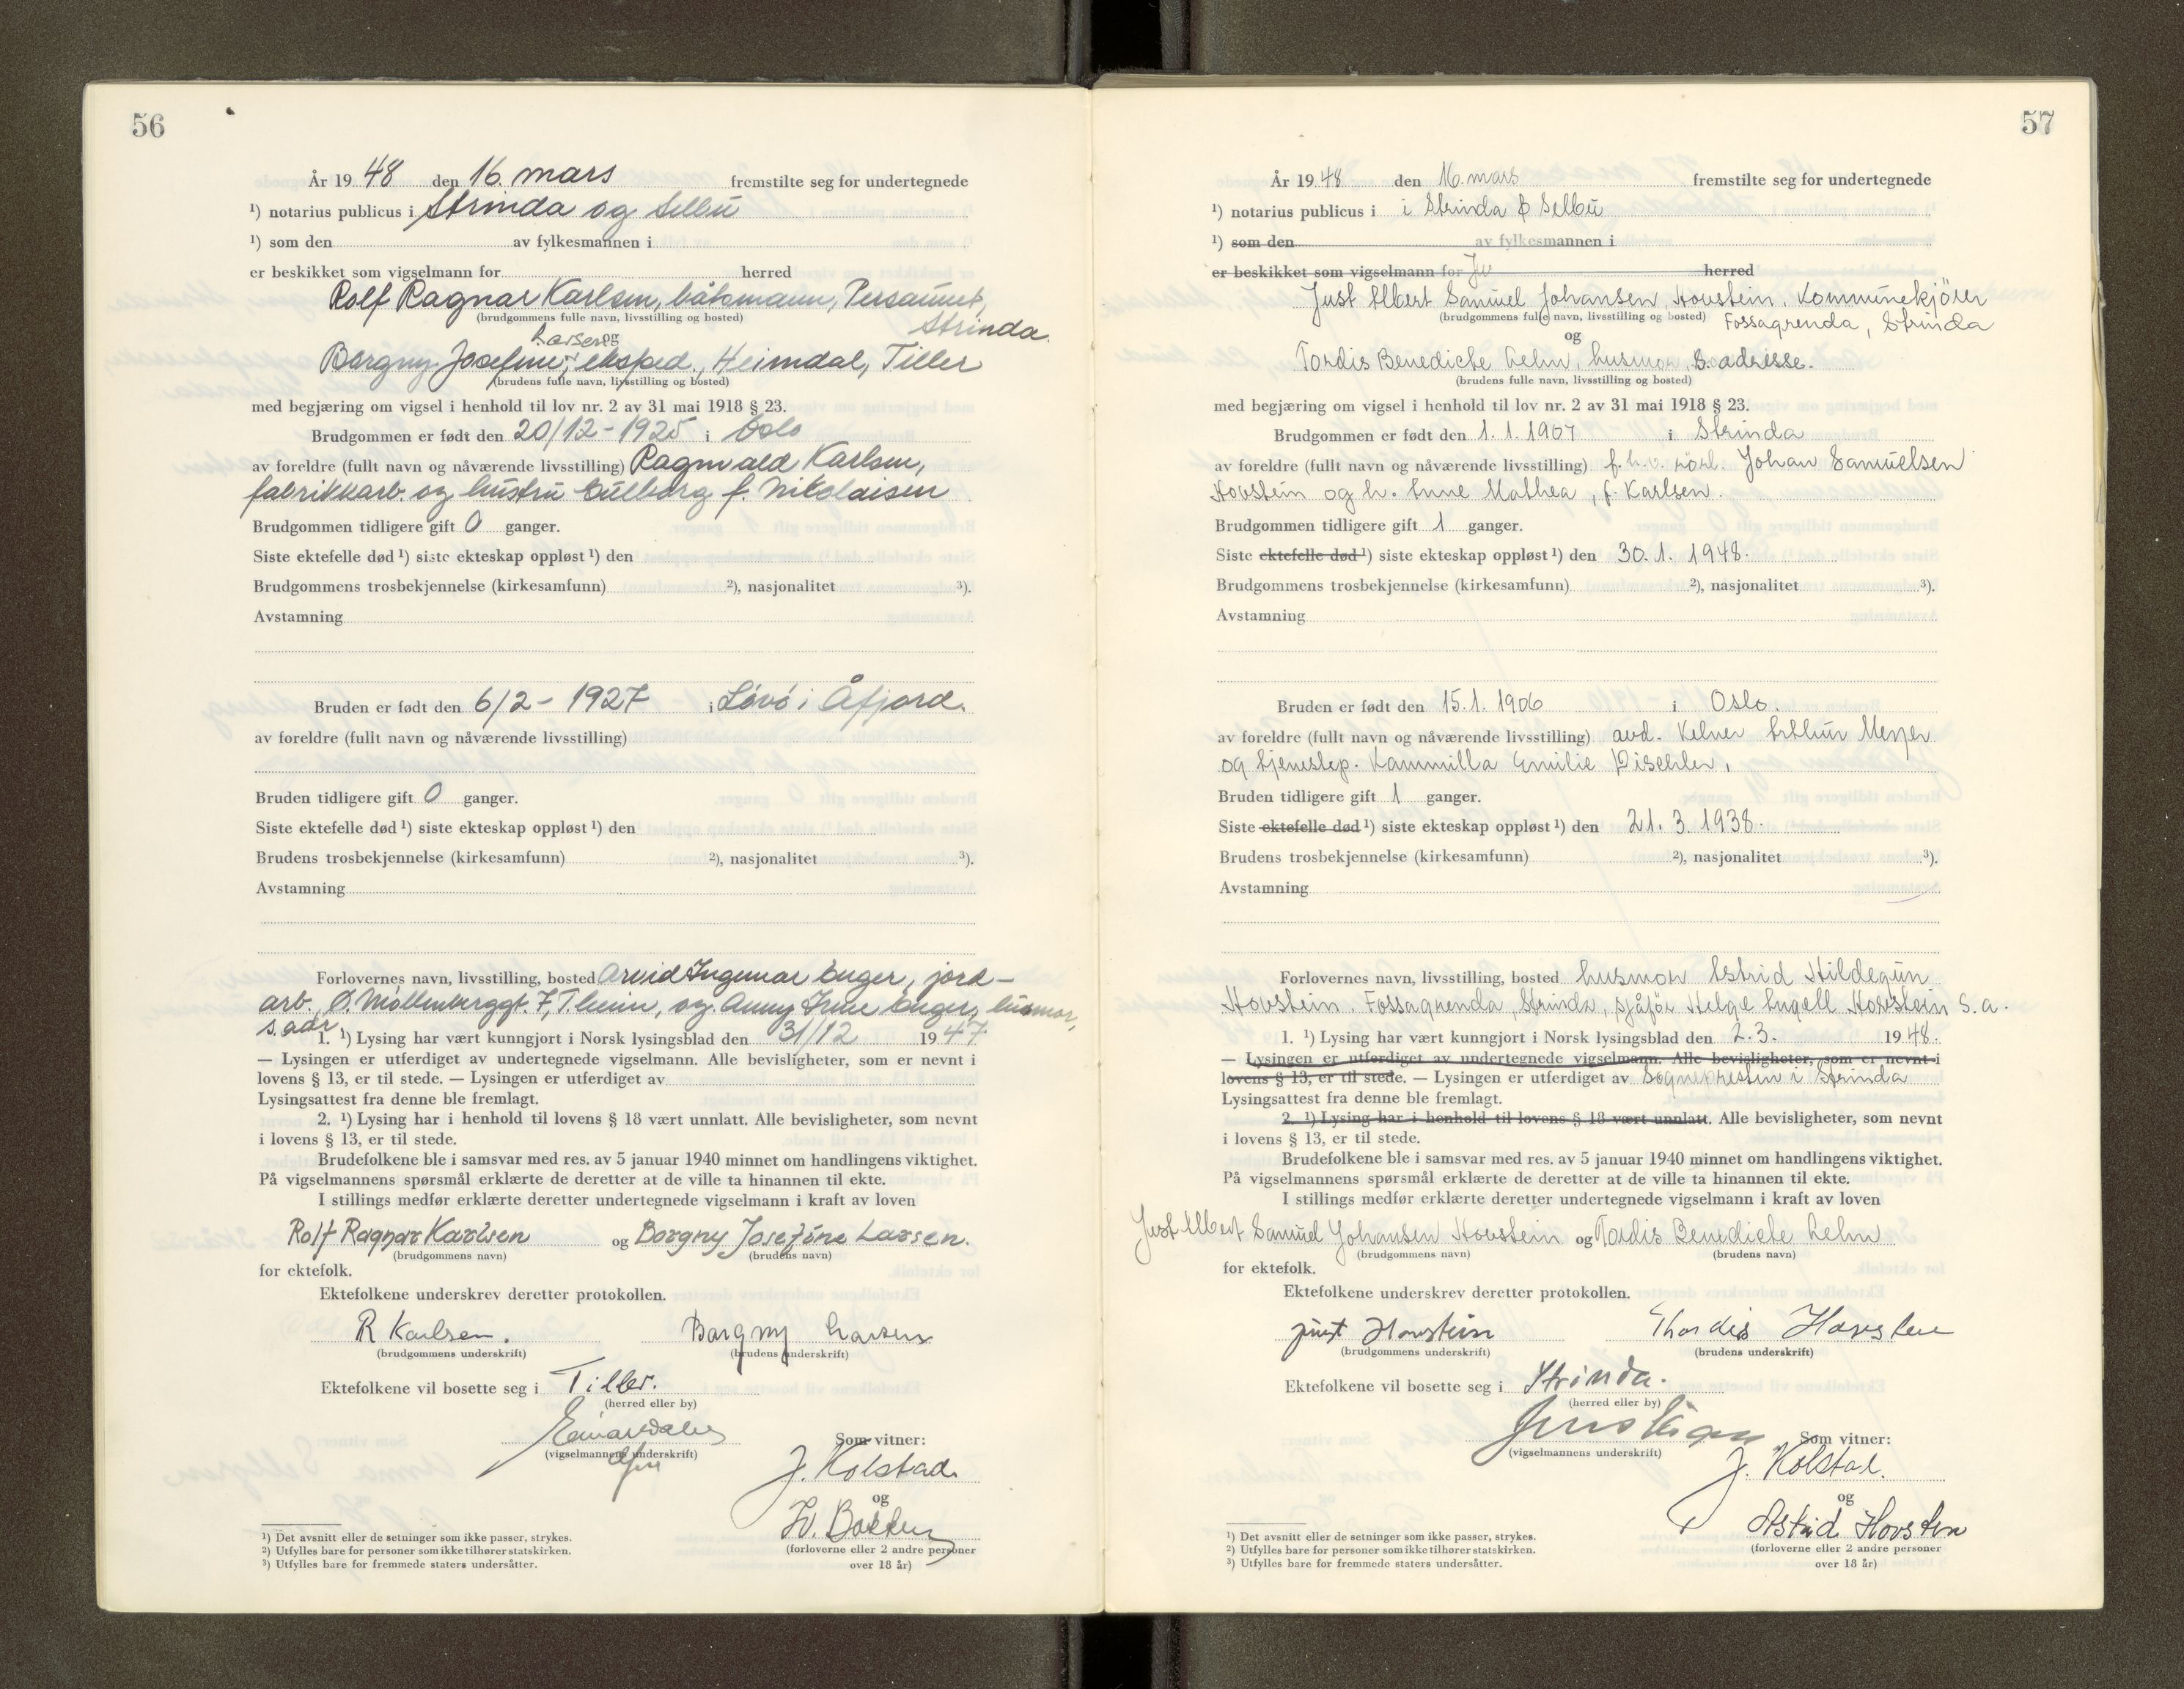 56
År 19 48 den 16. mars fremstilte seg for undertegnede
¹) notarius publicus i Strinda og Selbu
¹) som den av fylkesmannen i
er beskikket som vigselmann for herred
Rolf Ragnar Karlsen, båtsmann, Persaunet,
(brudgommens fulle navn, livsstilling og bosted) Strinda.
Larsen og
Borgny Josefine, eksped., Heimdal, Tiller
(brudens fulle navn, livsstilling og bosted)
med begjæring om vigsel i henhold til lov nr. 2 av 31 mai 1918 § 23.
Brudgommen er født den 20/12 - 1925 i Oslo
av foreldre (fullt navn og nåværende livsstilling) Ragnvald Karlsen,
fabrikkarb. og hustru Gulborg f. Nikolaisen
Brudgommen tidligere gift 0 ganger.
Siste ektefelle død ¹) siste ekteskap oppløst ¹) den
Brudgommens trosbekjennelse (kirkesamfunn) ²), nasjonalitet ³).
Avstamning
Bruden er født den 6/2 - 1927 i Lövö i Åfjord.
av foreldre (fullt navn og nåværende livsstilling)
Bruden tidligere gift 0 ganger.
Siste ektefelle død ¹) siste ekteskap oppløst ¹) den
Brudens trosbekjennelse (kirkesamfunn) ²), nasjonalitet ³).
Avstamning
Forlovernes navn, livsstilling, bosted Arvid Ingemar Enger, jord-
arb., Ø. Möllenberggt. 7, T.heim, og Anny Irene Enger, husmor,
s. adr.
1. ¹) Lysing har vært kunngjort i Norsk lysingsblad den 31/12 19 47
— Lysingen er utferdiget av undertegnede vigselmann. Alle bevisligheter, som er nevnt i
lovens § 13, er til stede. — Lysingen er utferdiget av
Lysingsattest fra denne ble fremlagt.
2. ¹) Lysing har i henhold til lovens § 18 vært unnlatt. Alle bevisligheter, som nevnt
i lovens § 13, er til stede.
Brudefolkene ble i samsvar med res. av 5 januar 1940 minnet om handlingens viktighet.
På vigselmannens spørsmål erklærte de deretter at de ville ta hinannen til ekte.
I stillings medfør erklærte deretter undertegnede vigselmann i kraft av loven
Rolf Ragnar Karlsen og Borgny Josefine Larsen.
(brudgommens navn) (brudens navn)
for ektefolk.
Ektefolkene underskrev deretter protokollen.
R Karlsen. Borgny Larsen
(brudgommens underskrift) (brudens underskrift)
Ektefolkene vil bosette seg i Tiller.
(herred eller by)
(vigselmannens underskrift)
Som vitner:
J. Kolstad
og
(forloverne eller 2 andre personer
over 18 år)
¹) Det avsnitt eller de setninger som ikke passer, strykes.
²) Utfylles bare for personer som ikke tilhører statskirken.
³) Utfylles bare for fremmede staters undersåtter.
57
År 19 48 den 16. mars fremstilte seg for undertegnede
¹) notarius publicus i i Strinda & Selbu
¹) som den av fylkesmannen i
er beskikket som vigselmann for Ju herred
Just Albert Samuel Johansen Hovstein, Kommunekjörer
(brudgommens fulle navn, livsstilling og bosted) Fossagrenda, Strinda
og
Tordis Benedicte Aelm, husmor, s. adresse.
(brudens fulle navn, livsstilling og bosted)
med begjæring om vigsel i henhold til lov nr. 2 av 31 mai 1918 § 23.
Brudgommen er født den 1.1.1907 i Strinda
av foreldre (fullt navn og nåværende livsstilling) f.h.v. Johan Samuelsen
Hovstein og h. Anne Mathea, f. Karlsen.
Brudgommen tidligere gift 1 ganger.
Siste ektefelle død ¹) siste ekteskap oppløst ¹) den 30.1.1948.
Brudgommens trosbekjennelse (kirkesamfunn) ²), nasjonalitet ³).
Avstamning
Bruden er født den 15.1.1906 i Oslo.
av foreldre (fullt navn og nåværende livsstilling) avd. Kelner Arthur Meyer
og tjenestep. Kammilla Emilie Dischler,
Bruden tidligere gift 1 ganger.
Siste ektefelle død ¹) siste ekteskap oppløst ¹) den 21.3.1938.
Brudens trosbekjennelse (kirkesamfunn) ²), nasjonalitet ³).
Avstamning
Forlovernes navn, livsstilling, bosted husmor Astrid Hildegun
Hovstein. Fossagrenda, Strinda, sjåför Helge Engell Hovstein s.a.
1. ¹) Lysing har vært kunngjort i Norsk lysingsblad den 2.3. 19 48.
— Lysingen er utferdiget av undertegnede vigselmann. Alle bevisligheter, som er nevnt i
lovens § 13, er til stede. — Lysingen er utferdiget av Sognepresten i Strinda
Lysingsattest fra denne ble fremlagt.
2. ¹) Lysing har i henhold til lovens § 18 vært unnlatt. Alle bevisligheter, som nevnt
i lovens § 13, er til stede.
Brudefolkene ble i samsvar med res. av 5 januar 1940 minnet om handlingens viktighet.
På vigselmannens spørsmål erklærte de deretter at de ville ta hinannen til ekte.
I stillings medfør erklærte deretter undertegnede vigselmann i kraft av loven
Just Albert Samuel Johansen Hovstein og Tordis Benedicte Aelm
(brudgommens navn) (brudens navn)
for ektefolk.
Ektefolkene underskrev deretter protokollen.
Just Hovstein Thordis Hovsten
(brudgommens underskrift) (brudens underskrift)
Ektefolkene vil bosette seg i Strinda.
(herred eller by)
(vigselmannens underskrift)
Som vitner:
J. Kolstad.
og
Astrid Hovsten
(forloverne eller 2 andre personer
over 18 år)
¹) Det avsnitt eller de setninger som ikke passer, strykes.
²) Utfylles bare for personer som ikke tilhører statskirken.
³) Utfylles bare for fremmede staters undersåtter.